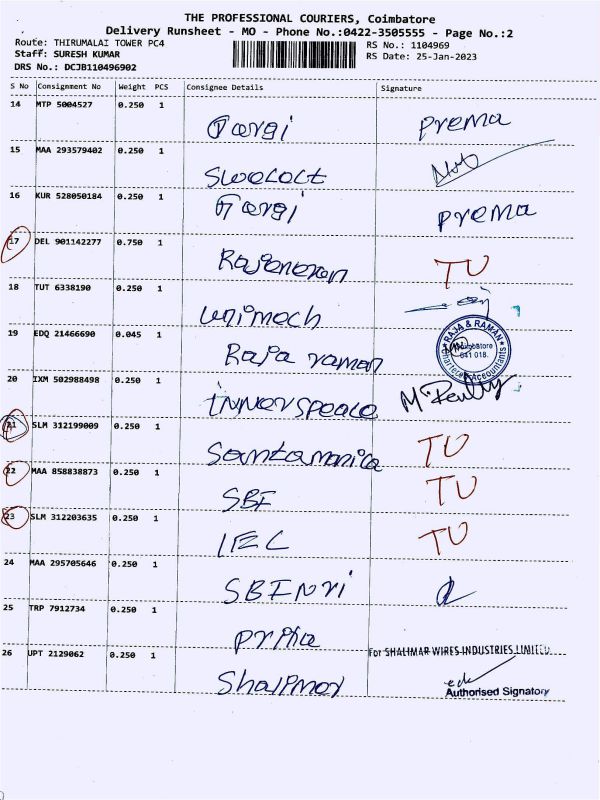 THE PROFESSIONAL COURIERS, Coimbatore
Delivery Runsheet - MO - Phone No.:0422-3505555 - Page No.:2
Route: THIRUMALAI TOWER PC4 RS No.: 1104969
Staff: SURESH KUMAR RS Date: 25-Jan-2023
DRS No.: DCJB110496902
S No Consignment No Weight PCS Consignee Details Signature
14 MTP 5004527 0.250 1
Gargi Prema
15 MAA 293579402 0.250 1
16 KUR 528050184 0.250 1
Gargi Prema
17 DEL 901142277 0.750 1
TU
18 TUT 6338190 0.250 1
unimech
19 EDQ 21466690 0.045 1
Raja raman
RAJA & RAMAN
Coimbatore
641 018.
Chartered Accountants
20 IXM 502988498 0.250 1
innerspeace
21 SLM 312199009 0.250 1
Santamonica TU
22 MAA 858838873 0.250 1
SBF TU
23 SLM 312203635 0.250 1
IEC TU
24 MAA 295705646 0.250 1
SBI Nri
25 TRP 7912734 0.250 1
For SHALIMAR WIRES INDUSTRIES LIMITED.
26 UPT 2129062 0.250 1
Authorised Signatory